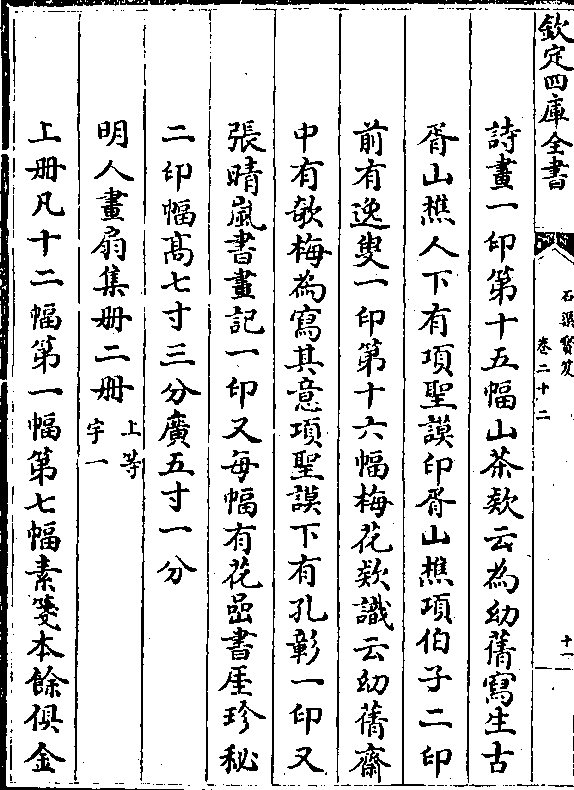 欽定四庫全書
石渠寶笈
卷二十二
十一
詩畫一印第十五幅山茶欵云為幼蒨寫生古
胥山樵人下有項聖謨印胥山樵項伯子二印
前有逸叟一印第十六幅梅花欵識云幼蒨齋
中有欹梅為寫其意項聖謨下有孔彰一印又
張晴嵐書畫記一印又每幅有花嵒書屋珍秘
二印幅高七寸三分廣五寸一分
明人畫扇集册二册上等字一
上册凡十二幅第一幅第七幅素箋本餘俱金